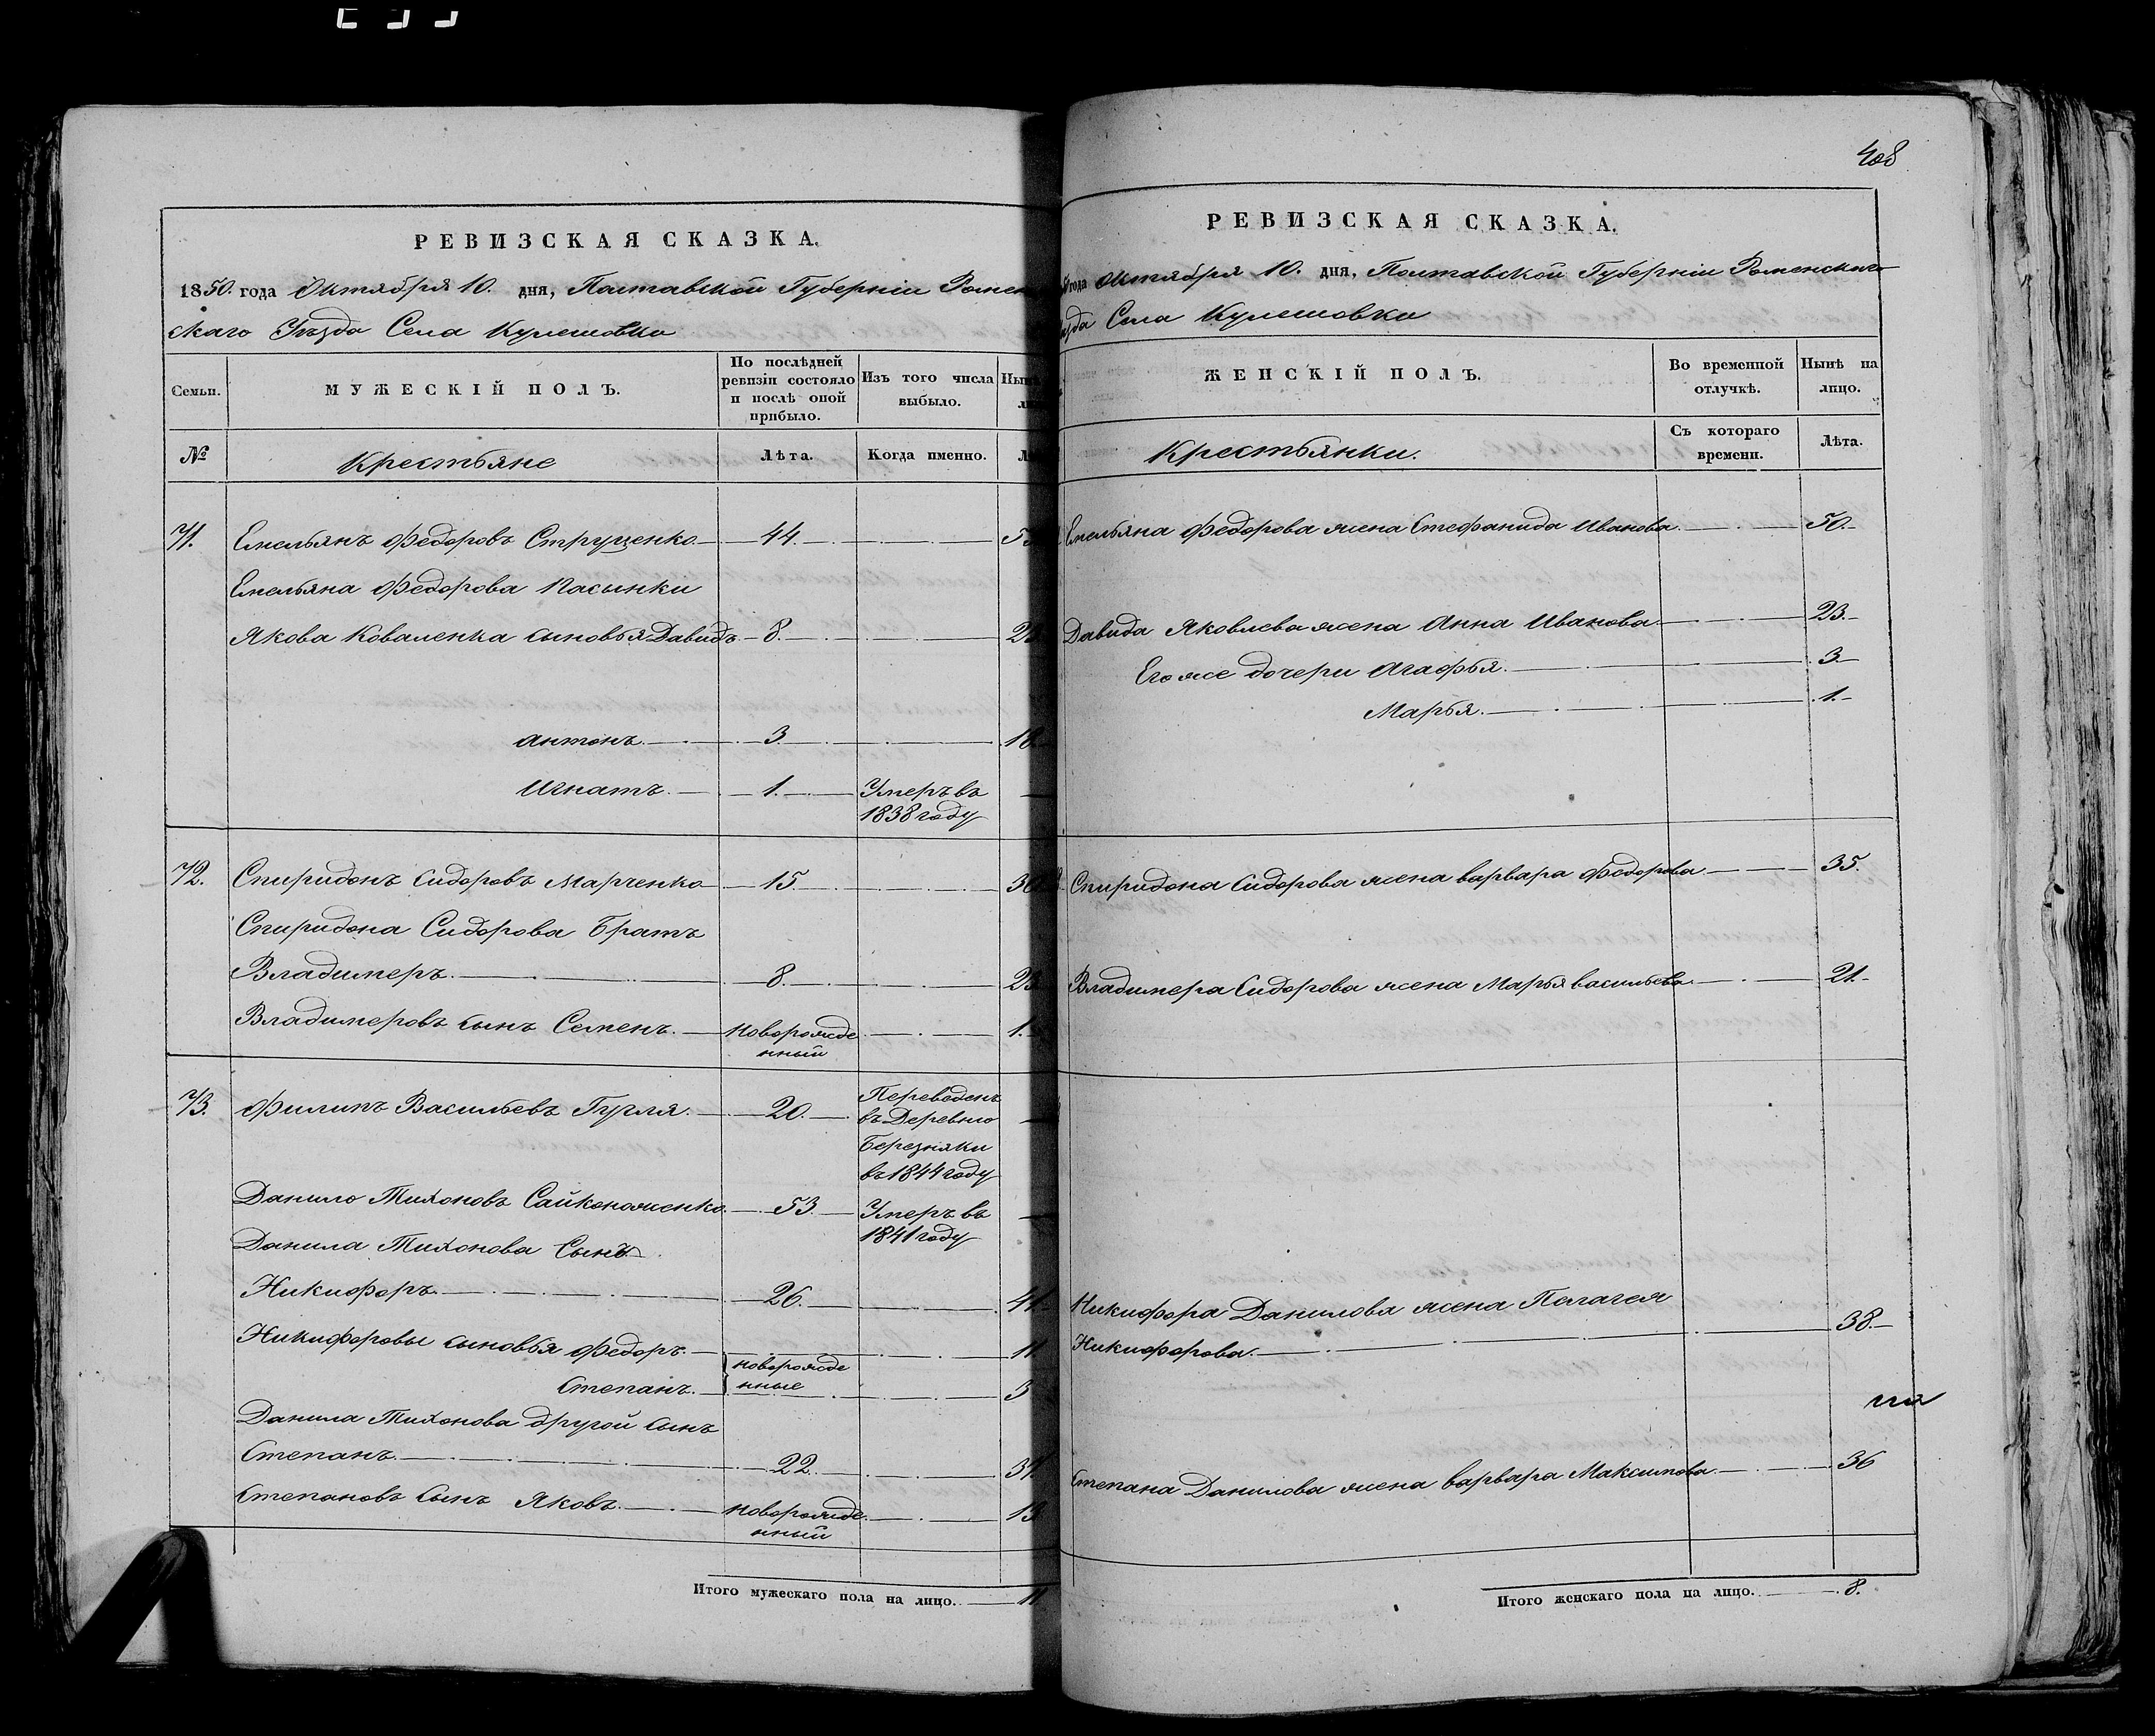 РЕВИЗСКАЯ СКАЗКА.
1850. года Октября 10. дня, Полтавской Губернiи Ромен
скаго Уѣзда Села Кулешовки
Семьи.
МУЖЕСКIЙ ПОЛЪ.
По послѣдней ревизiи состояло и послѣ оной прибыло.
Изъ того числа выбыло.
№
Крестьяне
Лѣта.
Когда именно.
71. Емельянъ Федоровъ Струценко 44.
Емельяна Федорова Пасынки
Якова Коваленка сыновья Давидъ 8. 23
Антонъ. 3 18
Игнатъ. 1. Умеръ въ
1838 году
72. Спиридонъ Сидоровъ Марченко 15 30
Спиридона Сидорова Братъ
Владимеръ. 8. 23
Владимеровъ сынъ Семенъ. новорожде 1.
нный
73. Филипъ Васильевъ Гугля. 20. Переведенъ
въ Деревню
Березняки
въ 1844 году
Данило Тихоновъ Сайконоженко. 53. Умеръ въ
1841 году
Данила Тихонова Сынъ
Никифоръ. 26. 41.
Никифоровы сыновья Федоръ. новорожде 11
Степанъ. нные 3
Данила Тихонова другой сынъ
Степанъ. 22. 37
Степановъ Сынъ Яковъ. новорожде 13
нный
Итого мужескаго пола на лицо. 11
408
РЕВИЗСКАЯ СКАЗКА.
года Октября 10. дня, Полтавской Губернiи Роменскаго
Села Кулешовки
ЖЕНСКIЙ ПОЛЪ.
Во временной отлучкѣ.
Нынѣ на лицо.
Крестьянки.
Съ котораго времени.
Лѣта.
Емельяна Федорова жена Стефанида Иванова. 50.
Давида Яковлева жена Анна Иванова. 23.
Его же дочери Агафья. 3
Марья. 1.
Спиридона Сидорова жена Варвара Федорова 35.
Владимера Сидорова жена Марья Васильева 21.
Никифора Данилова жена Пелагея
Никифорова. 38.
Степана Данилова жена Варвара Максимова 36
Итого женскаго пола на лицо. 8.